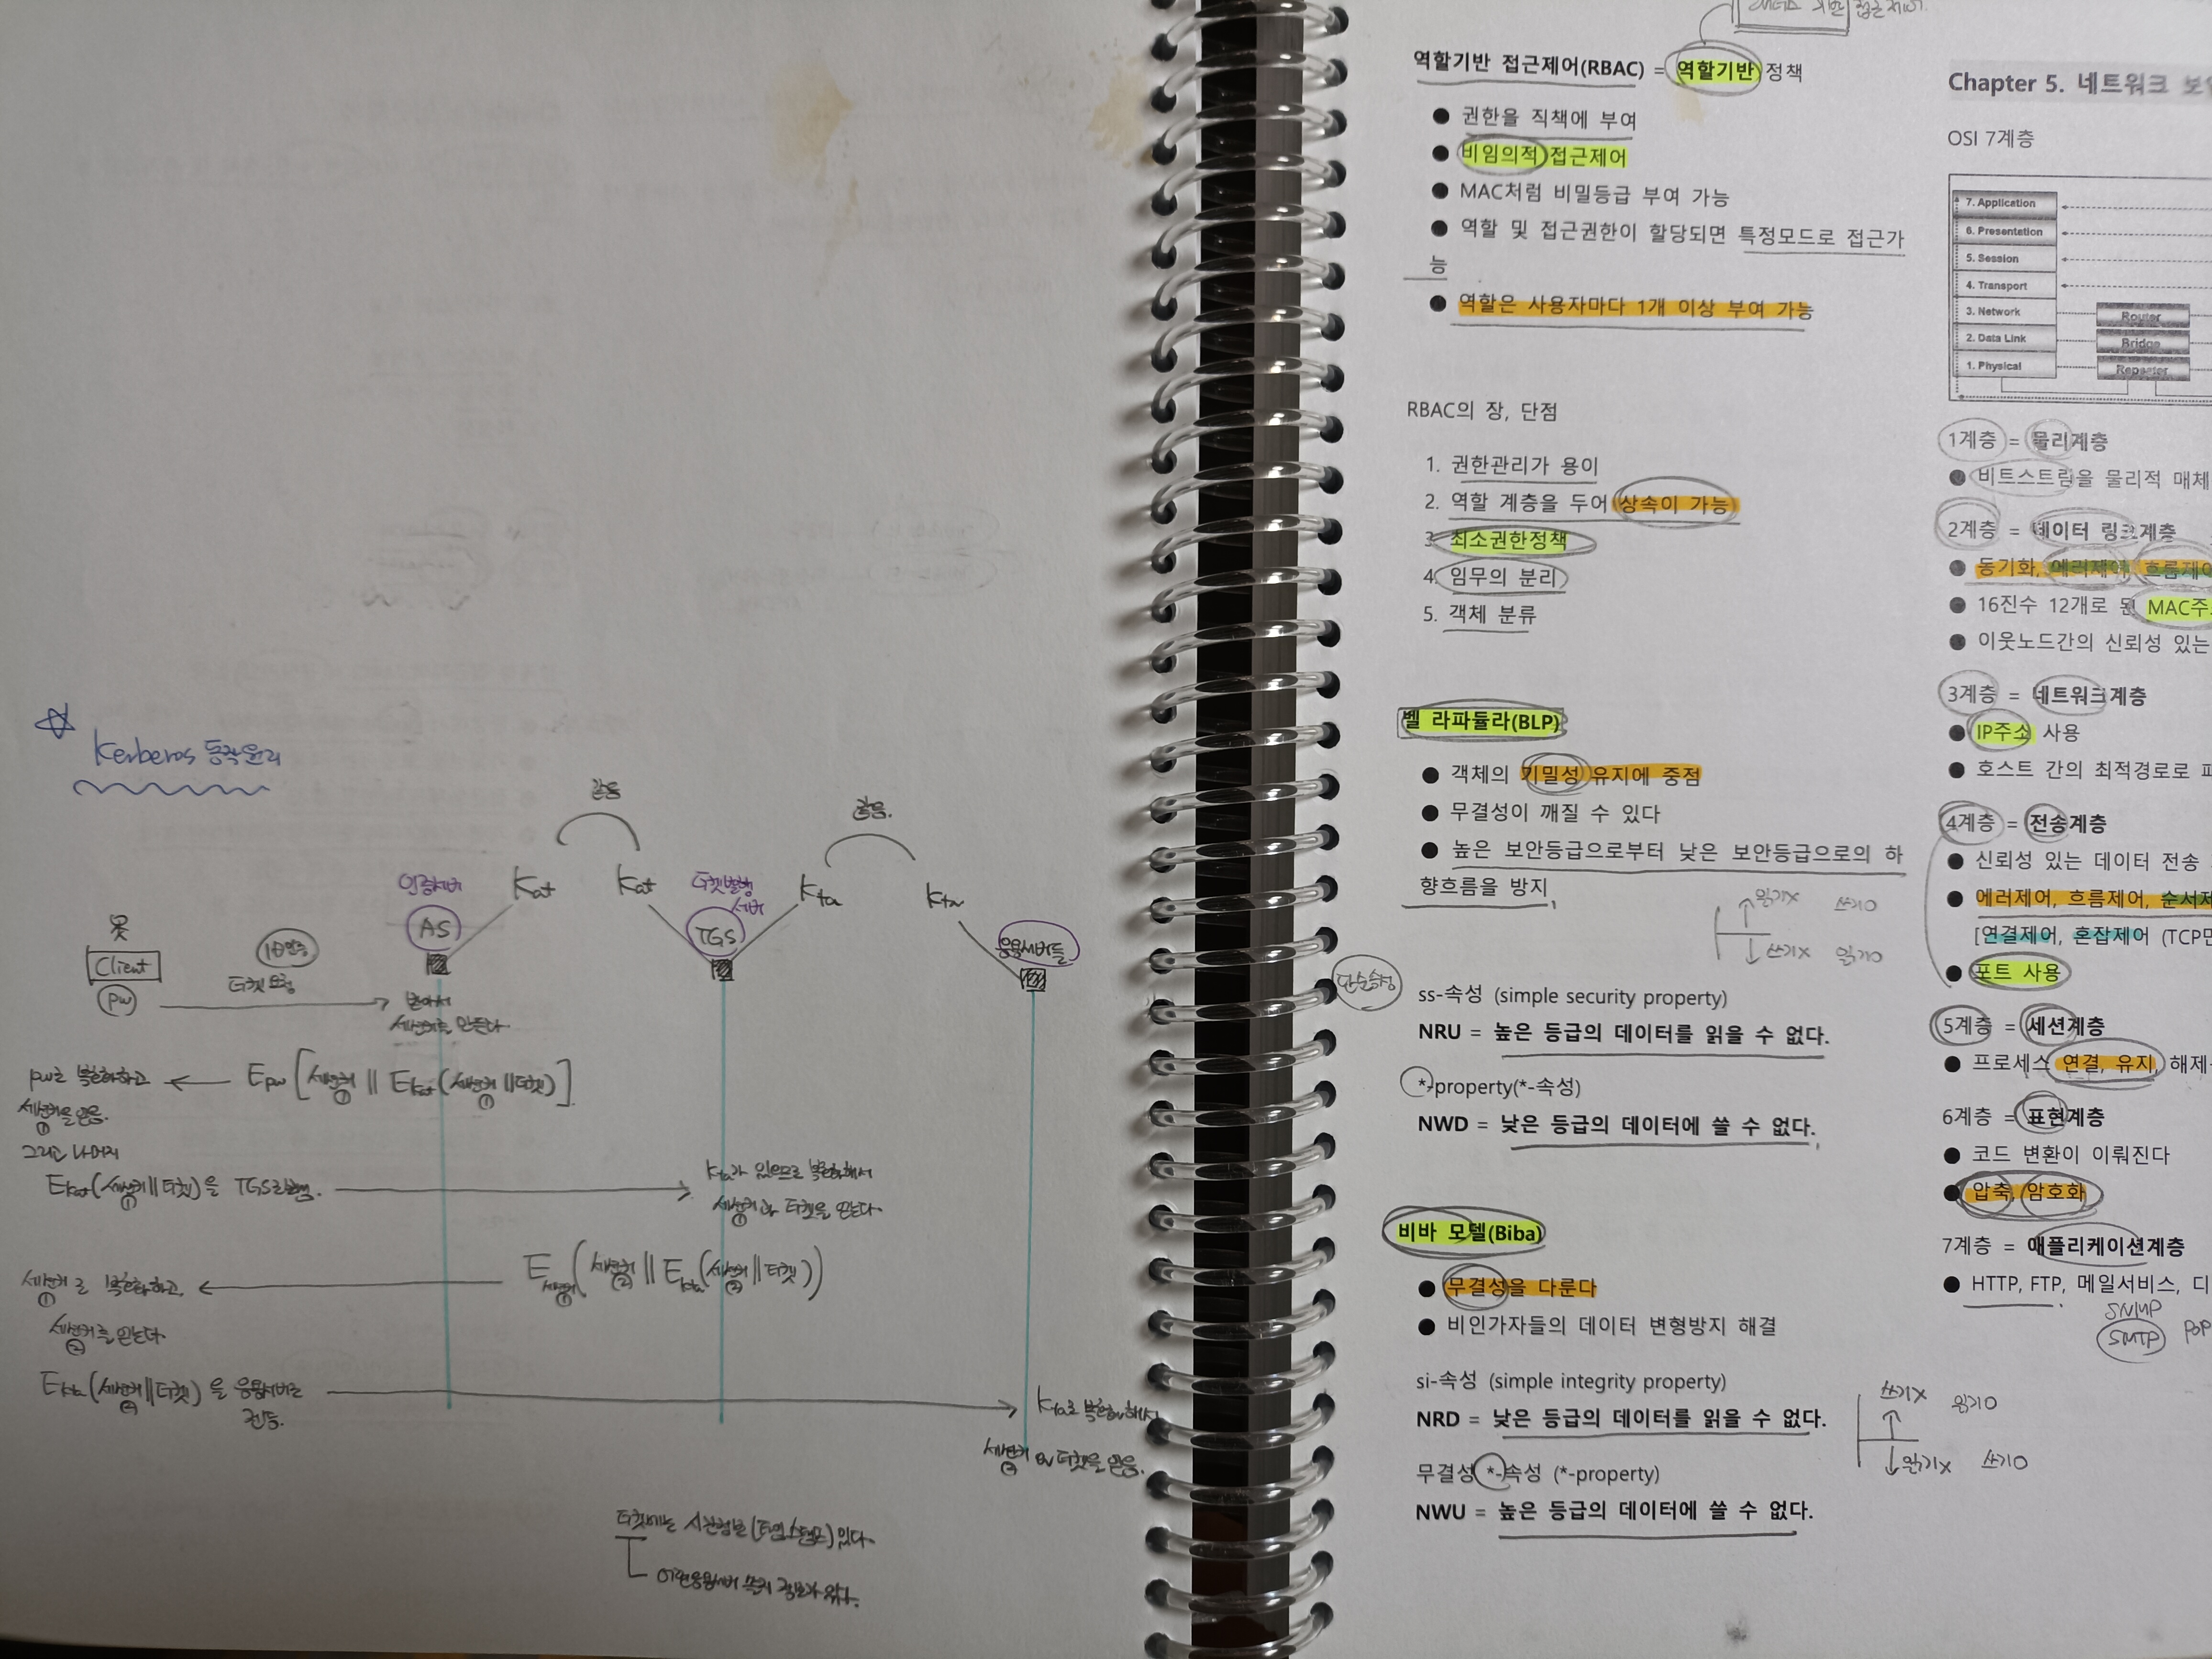 Kerberos 동작원리
같음
같음.
인증서버
Kat
Kat
티켓발행
서버
Kta
Kta
AS
TGS
응용서버들
Client
PW
1차인증
티켓 요청
받아서
세션키를 만든다.
PW로 복호화하고
세션키①을 얻음.
그리고 나머지
Epw[세션키① || EKat(세션키① || 티켓)]
EKat(세션키①||티켓)을 TGS로
있으므로 복호화해서
세션키①과 티켓을 얻는다.
E세션키①(세션키② || EKta(세션키② || 티켓))
세션키①로 복호화하고,
세션키②를 얻는다.
EKta(세션키②||티켓)을 응용서버로
전송.
Kta로 복호화해서
세션키② 티켓을 얻음.
티켓에는 시간정보(타임스탬프) 있다
어떤응용서버 정보가 있다.
기반 접근제어.
역할기반 접근제어(RBAC) = 역할기반 정책
● 권한을 직책에 부여
● 비임의적 접근제어
● MAC처럼 비밀등급 부여 가능
● 역할 및 접근권한이 할당되면 특정모드로 접근가
능
● 역할은 사용자마다 1개 이상 부여 가능
RBAC의 장, 단점
1. 권한관리가 용이
2. 역할 계층을 두어 상속이 가능
3. 최소권한정책
4. 임무의 분리
5. 객체 분류
벨 라파듈라(BLP)
● 객체의 기밀성 유지에 중점
● 무결성이 깨질 수 있다
● 높은 보안등급으로부터 낮은 보안등급으로의 하
향흐름을 방지
읽기X 쓰기O
쓰기X 읽기O
단순속성
ss-속성 (simple security property)
NRU = 높은 등급의 데이터를 읽을 수 없다.
*-property(*-속성)
NWD = 낮은 등급의 데이터에 쓸 수 없다.
비바 모델(Biba)
● 무결성을 다룬다
● 비인가자들의 데이터 변형방지 해결
si-속성 (simple integrity property)
NRD = 낮은 등급의 데이터를 읽을 수 없다.
무결성 *-속성 (*-property)
NWU = 높은 등급의 데이터에 쓸 수 없다.
쓰기X 읽기O
읽기X 쓰기O
Chapter 5. 네트워크 보
OSI 7계층
7. Application
6. Presentation
5. Session
4. Transport
3. Network
Router
2. Data Link
Bridge
1. Physical
Repeater
1계층 = 물리계층
● 비트스트림을 물리적 매체
2계층 = 데이터 링크계층
● 동기화, 에러제어, 흐름제어
● 16진수 12개로 된 MAC주
● 이웃노드간의 신뢰성 있는
3계층 = 네트워크계층
● IP주소 사용
● 호스트 간의 최적경로로 패
4계층 = 전송계층
● 신뢰성 있는 데이터 전송
● 에러제어, 흐름제어, 순서제
[연결제어, 혼잡제어 (TCP만
● 포트 사용
5계층 = 세션계층
● 프로세스 연결, 유지, 해제
6계층 = 표현계층
● 코드 변환이 이뤄진다
● 압축, 암호화
7계층 = 애플리케이션계층
● HTTP, FTP, 메일서비스, 디
SNMP
SMTP POP